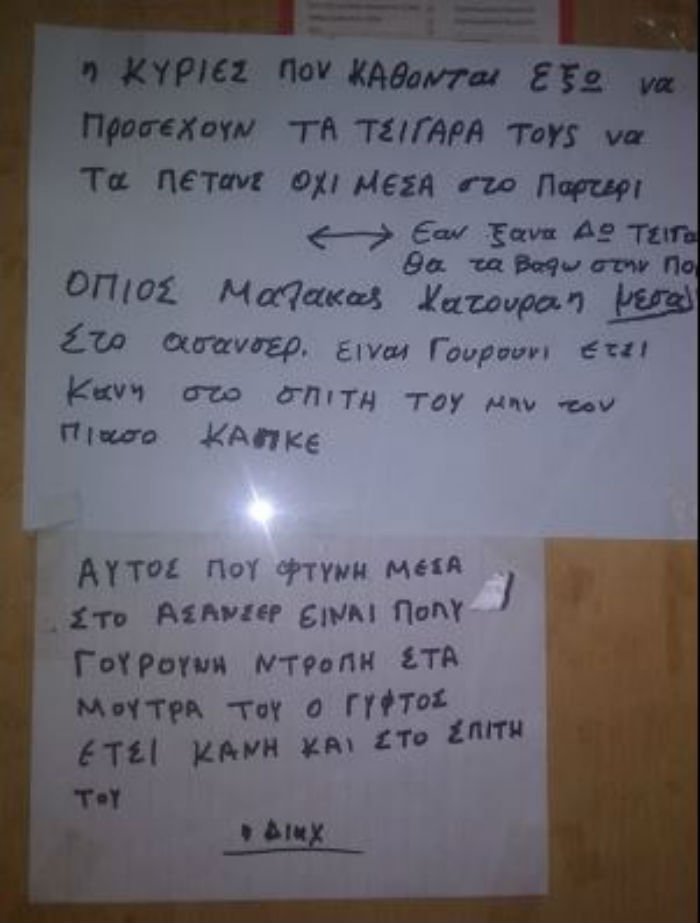 η ΚΥΡΙΕΣ ΠΟΥ ΚΑΘΟΝΤΑΙ ΕΞΩ να
ΠροσεχουΝ ΤΑ ΤΣΙΓΑΡΑ ΤΟΥς να
Τα ΠΕΤΑΝΕ ΟΧΙ ΜΕΣΑ στο Παρτερι
⟷ Εαν ξανα Δω
Θα τα Βαθω στην
ΟΠΙΟΣ Μαλακας Κατουραη μεσα
Στο ασανσερ. ειναι Γουρουνι ετσι
Κανη στο σΠΙΤΗ ΤΟΥ μην τον
Πιασο
ΑΥΤΟΣ ΠΟΥ ΦΤΥΝΗ ΜΕΣΑ
ΣΤΟ ΑΣΑΝΣΕΡ ΕΙΝΑΙ ΠΟΛΥ
ΓΟΥΡΟΥΝΗ ΝΤΡΟΠΗ ΣΤΑ
ΜΟΥΤΡΑ ΤΟΥ Ο ΓΥΦΤΟΣ
ΕΤΣΙ ΚΑΝΗ ΚΑΙ ΣΤΟ ΣΠΙΤΗ
ΤΟΥ
η Διαχ